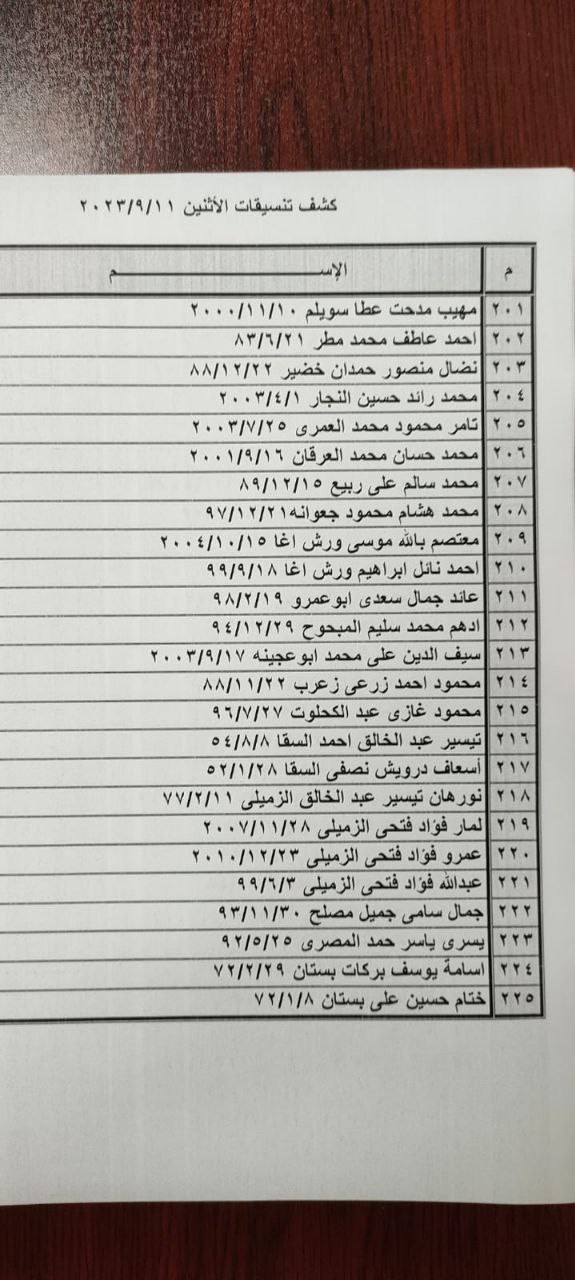 كشف تنسيقات الأثنين ٢٠٢٣/٩/١١
م الإســـــــم
٢٠١ مهيب مدحت عطا سويلم ٢٠٠٠/١١/١٠
٢٠٢ احمد عاطف محمد مطر ٨٣/٦/٢١
٢٠٣ نضال منصور حمدان خضير ٨٨/١٢/٢٢
٢٠٤ محمد رائد حسين النجار ٢٠٠٣/٤/١
٢٠٥ تامر محمود محمد العمرى ٢٠٠٣/٧/٢٥
٢٠٦ محمد حسان محمد العرقان ٢٠٠١/٩/١٦
٢٠٧ محمد سالم على ربيع ٨٩/١٢/١٥
٢٠٨ محمد هشام محمود جعوانه ٩٧/١٢/٢١
٢٠٩ معتصم بالله موسى ورش اغا ٢٠٠٤/١٠/١٥
٢١٠ احمد نائل ابراهيم ورش اغا ٩٩/٩/١٨
٢١١ عائد جمال سعدى ابوعمرو ٩٨/٢/١٩
٢١٢ ادهم محمد سليم المبحوح ٩٤/١٢/٢٩
٢١٣ سيف الدين على محمد ابوعجينه ٢٠٠٣/٩/١٧
٢١٤ محمود احمد زرعى زعرب ٨٨/١١/٢٢
٢١٥ محمود غازى عبد الكحلوت ٩٦/٧/٢٧
٢١٦ تيسير عبد الخالق احمد السقا ٥٤/٨/٨
٢١٧ أسعاف درويش نصفى السقا ٥٢/١/٢٨
٢١٨ نورهان تيسير عبد الخالق الزميلى ٧٧/٢/١١
٢١٩ لمار فؤاد فتحى الزميلى ٢٠٠٧/١١/٢٨
٢٢٠ عمرو فؤاد فتحى الزميلى ٢٠١٠/١٢/٢٣
٢٢١ عبدالله فؤاد فتحى الزميلى ٩٩/٦/٣
٢٢٢ جمال سامى جميل مصلح ٩٣/١١/٣٠
٢٢٣ يسرى ياسر حمد المصرى ٩٢/٥/٢٥
٢٢٤ اسامة يوسف بركات بستان ٧٢/٢/٢٩
٢٢٥ ختام حسين على بستان ٧٢/١/٨